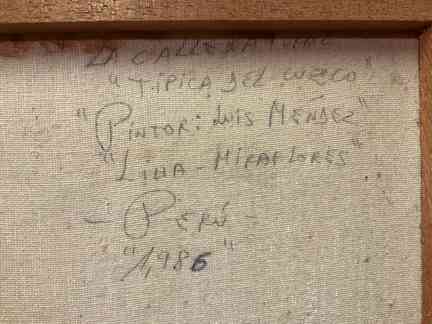 LA CALLE
"TIPICA DEL CUZCO"
"PINTOR: LUIS MÉNDEZ"
"LIMA - MIRAFLORES"
- PERÚ -
"1,986"